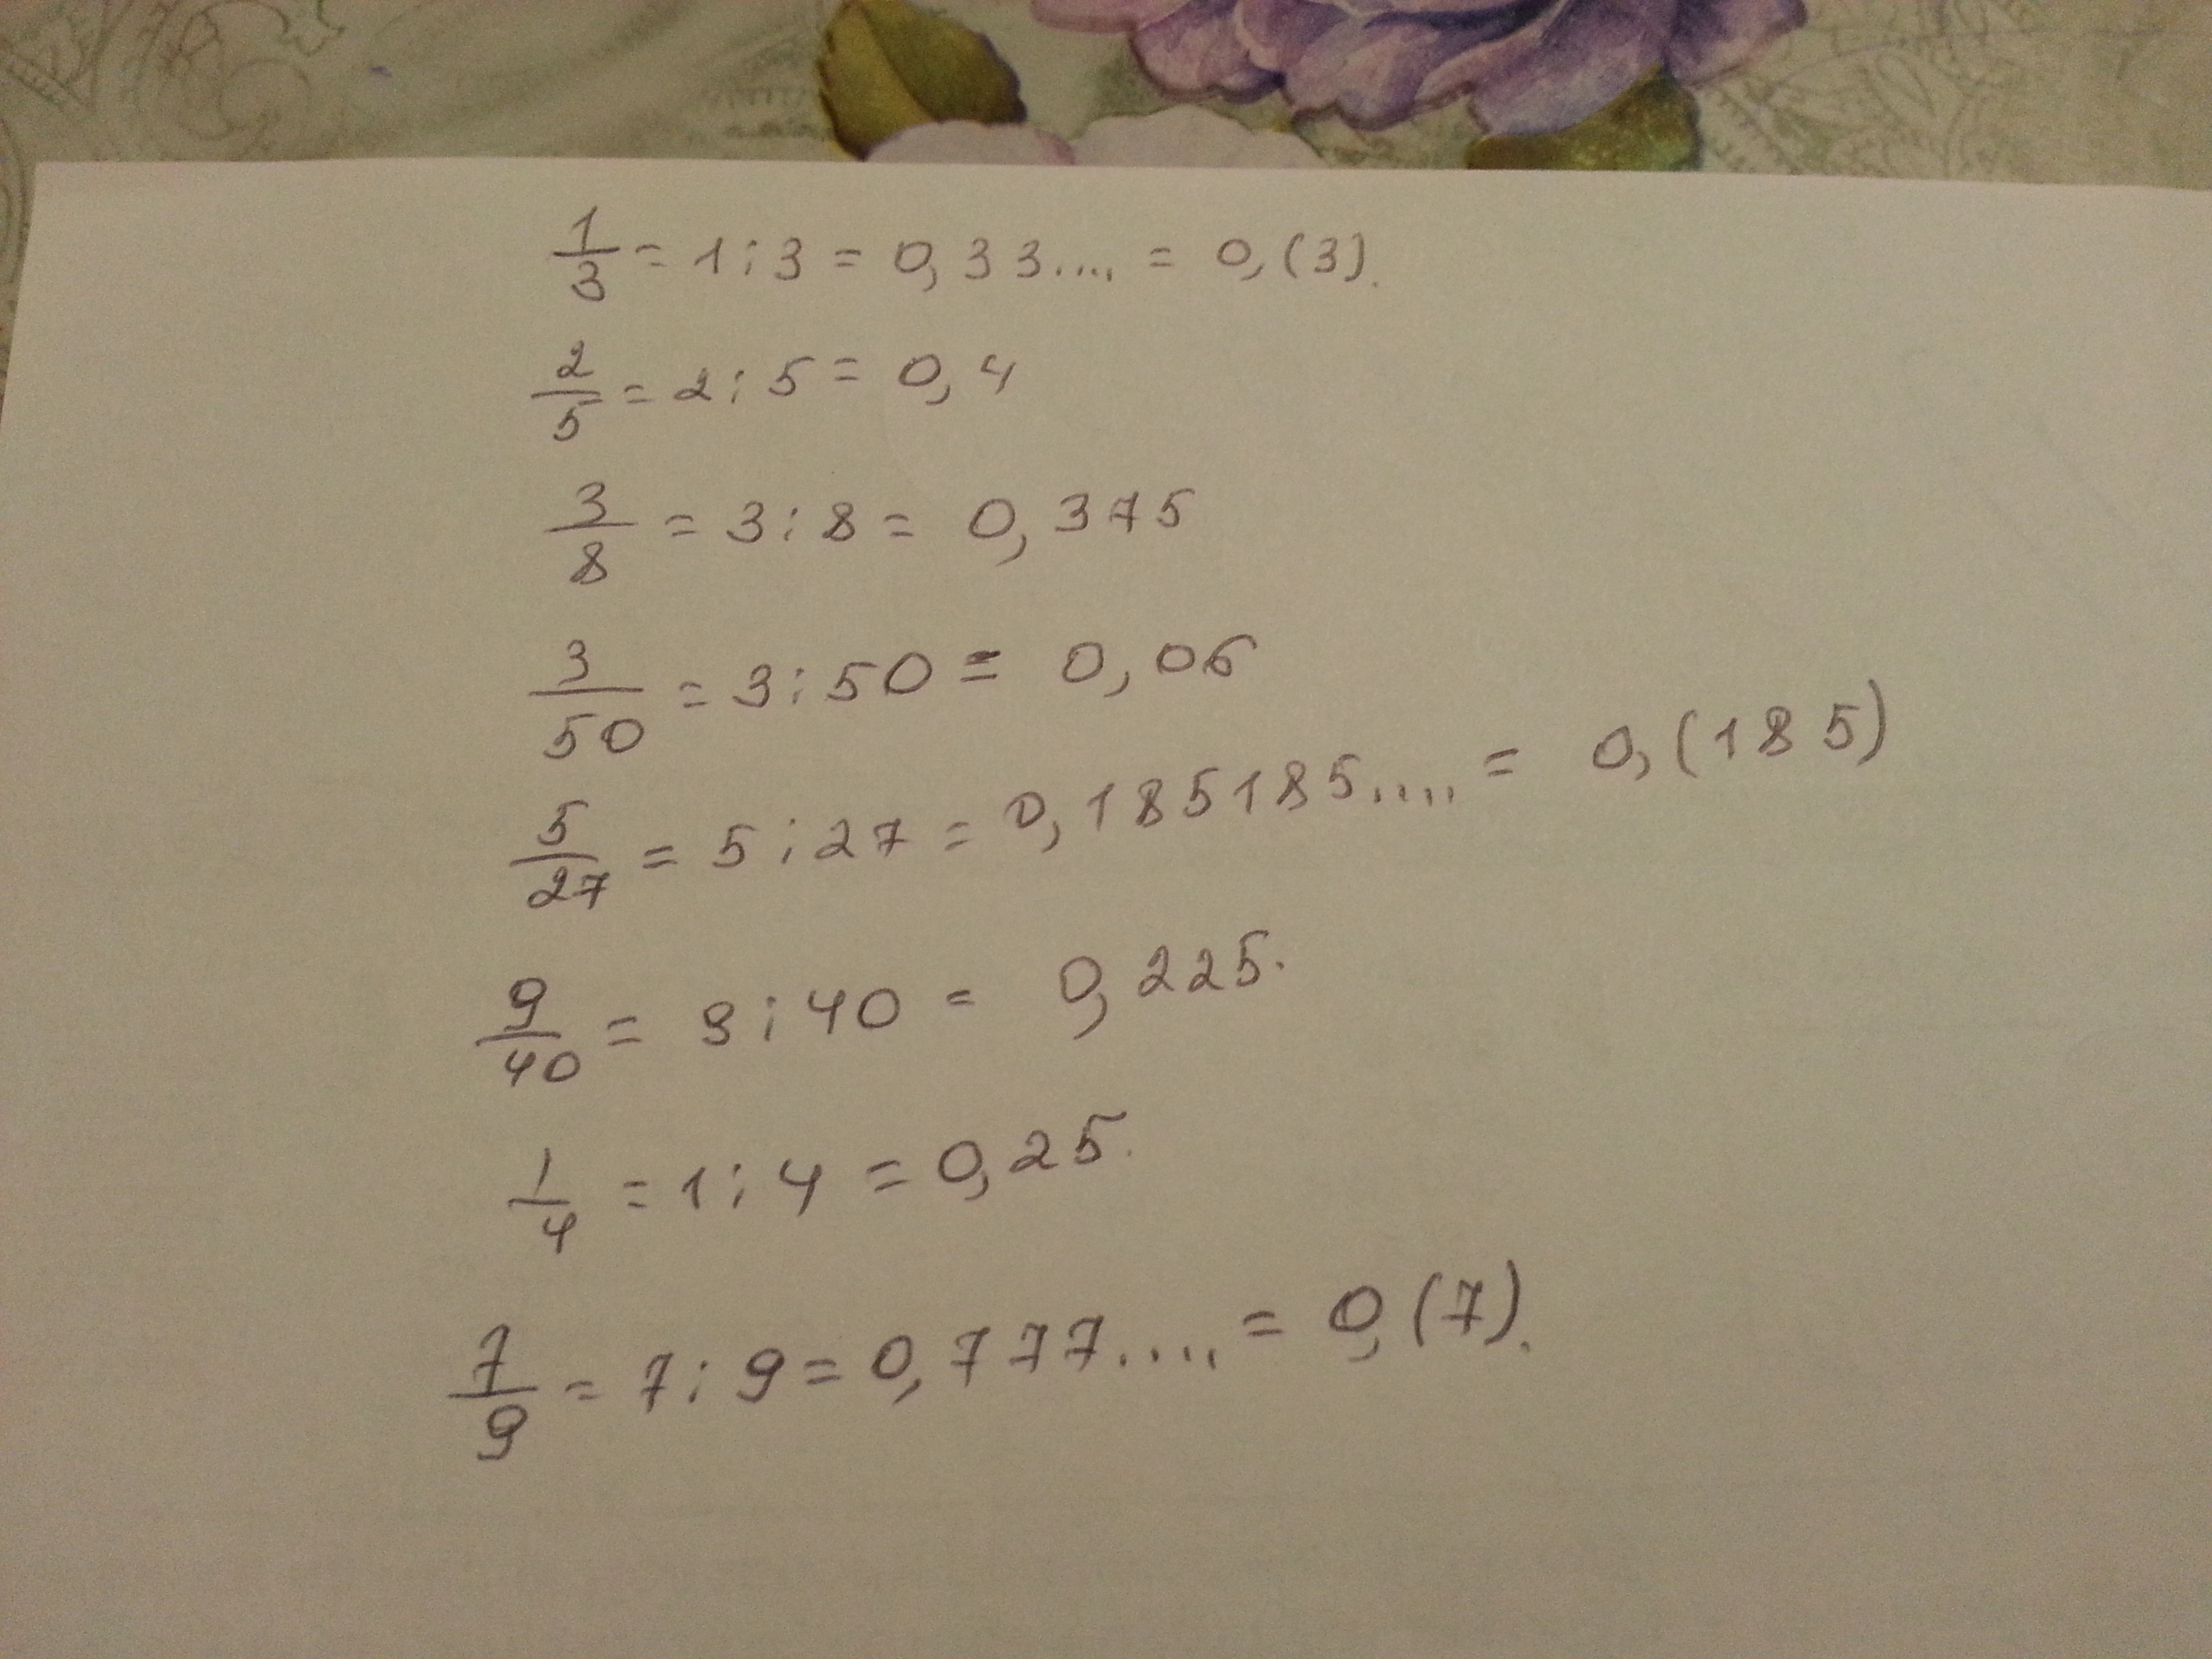 1/3 = 1 : 3 = 0,33.... = 0,(3).
2/5 = 2 : 5 = 0,4
3/8 = 3 : 8 = 0,375
3/50 = 3 : 50 = 0,06
5/27 = 5 : 27 = 0,185185.... = 0,(185)
9/40 = 9 : 40 = 0,225.
1/4 = 1 : 4 = 0,25.
7/9 = 7 : 9 = 0,777.... = 0,(7).